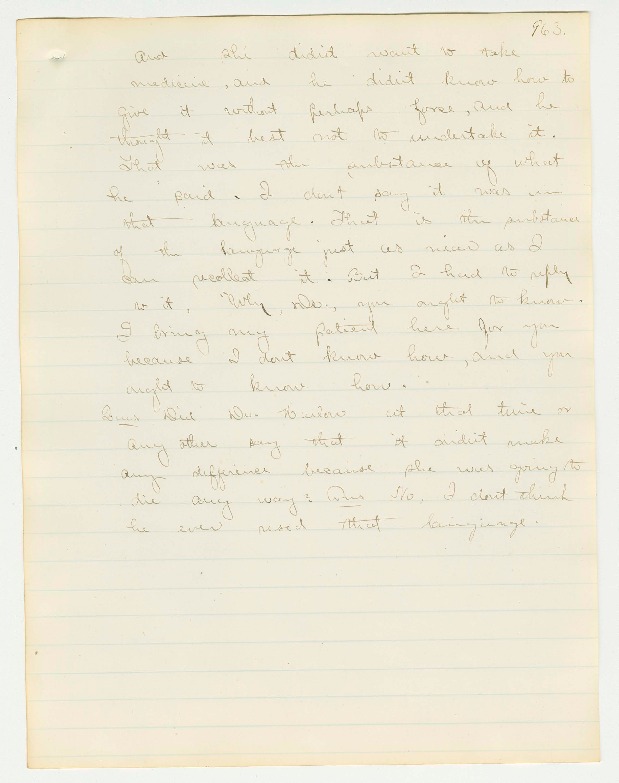 963.
And she didn't want to take
medicine, and he didn't know how to
give it without perhaps force, and he
thought it best not to undertake it.
That was the substance of what
he said. I don't say it was in
that language. That is the substance
of the language just as near as I
can recollect it. But I had to reply
to it, Why, Dr., you ought to know.
I bring my patient here for you
because I don't know how, and you
ought to know how.
Ques Did Dr. Harlow at that time or
any other say that it didn't make
any difference because she was going to
die any way? Ans No, I don't think
he ever used that language.